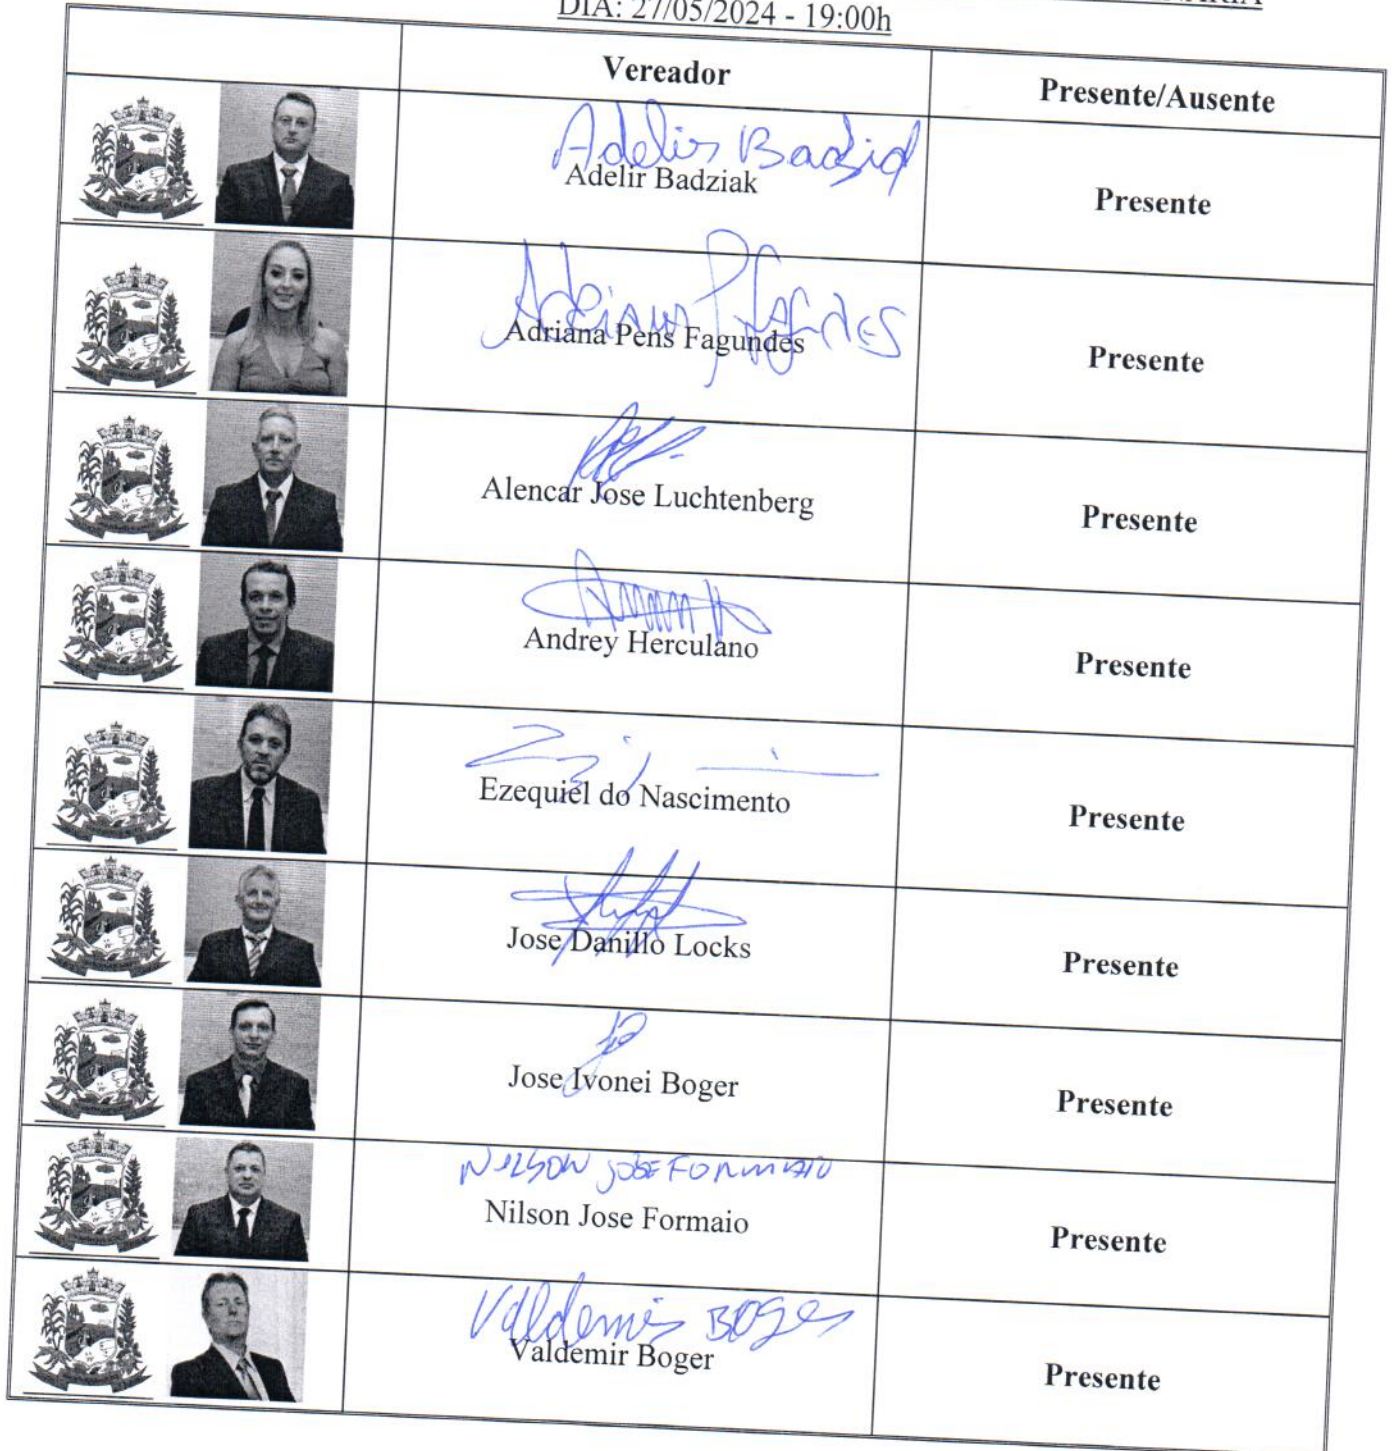 DIA: 27/05/2024 - 19:00h
Vereador
Presente/Ausente
Adelir Badziak
Adelir Badziak
Presente
Adriana P Fagundes
Adriana Pens Fagundes
Presente
Alencar Jose Luchtenberg
Presente
Andrey Herculano
Presente
Ezequiel do Nascimento
Presente
Jose Danillo Locks
Presente
Jose Ivonei Boger
Presente
NILSON JOSE FORMAIO
Nilson Jose Formaio
Presente
Valdemir BOGER
Valdemir Boger
Presente